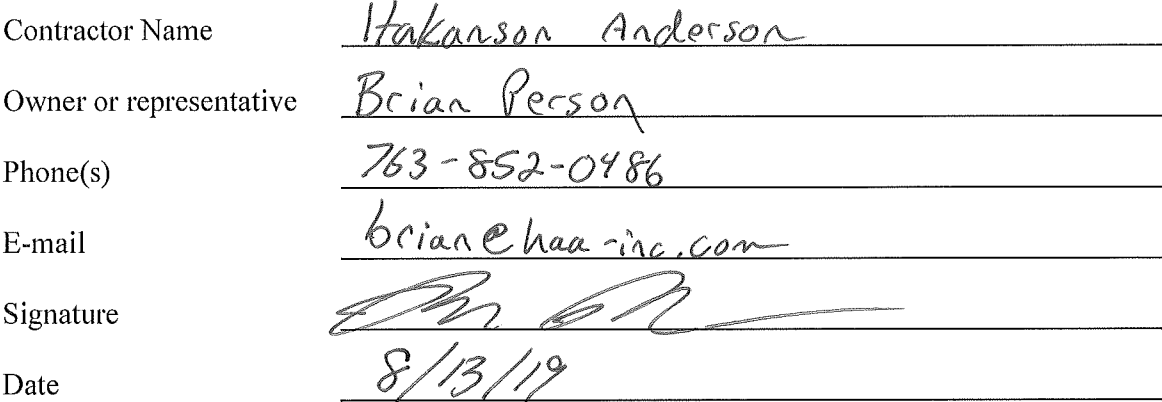 Contractor Name Hakanson Anderson
Owner or representative Brian Person
Phone(s) 763-852-0486
E-mail brian@haa-inc.com
Signature
Date 8/13/19